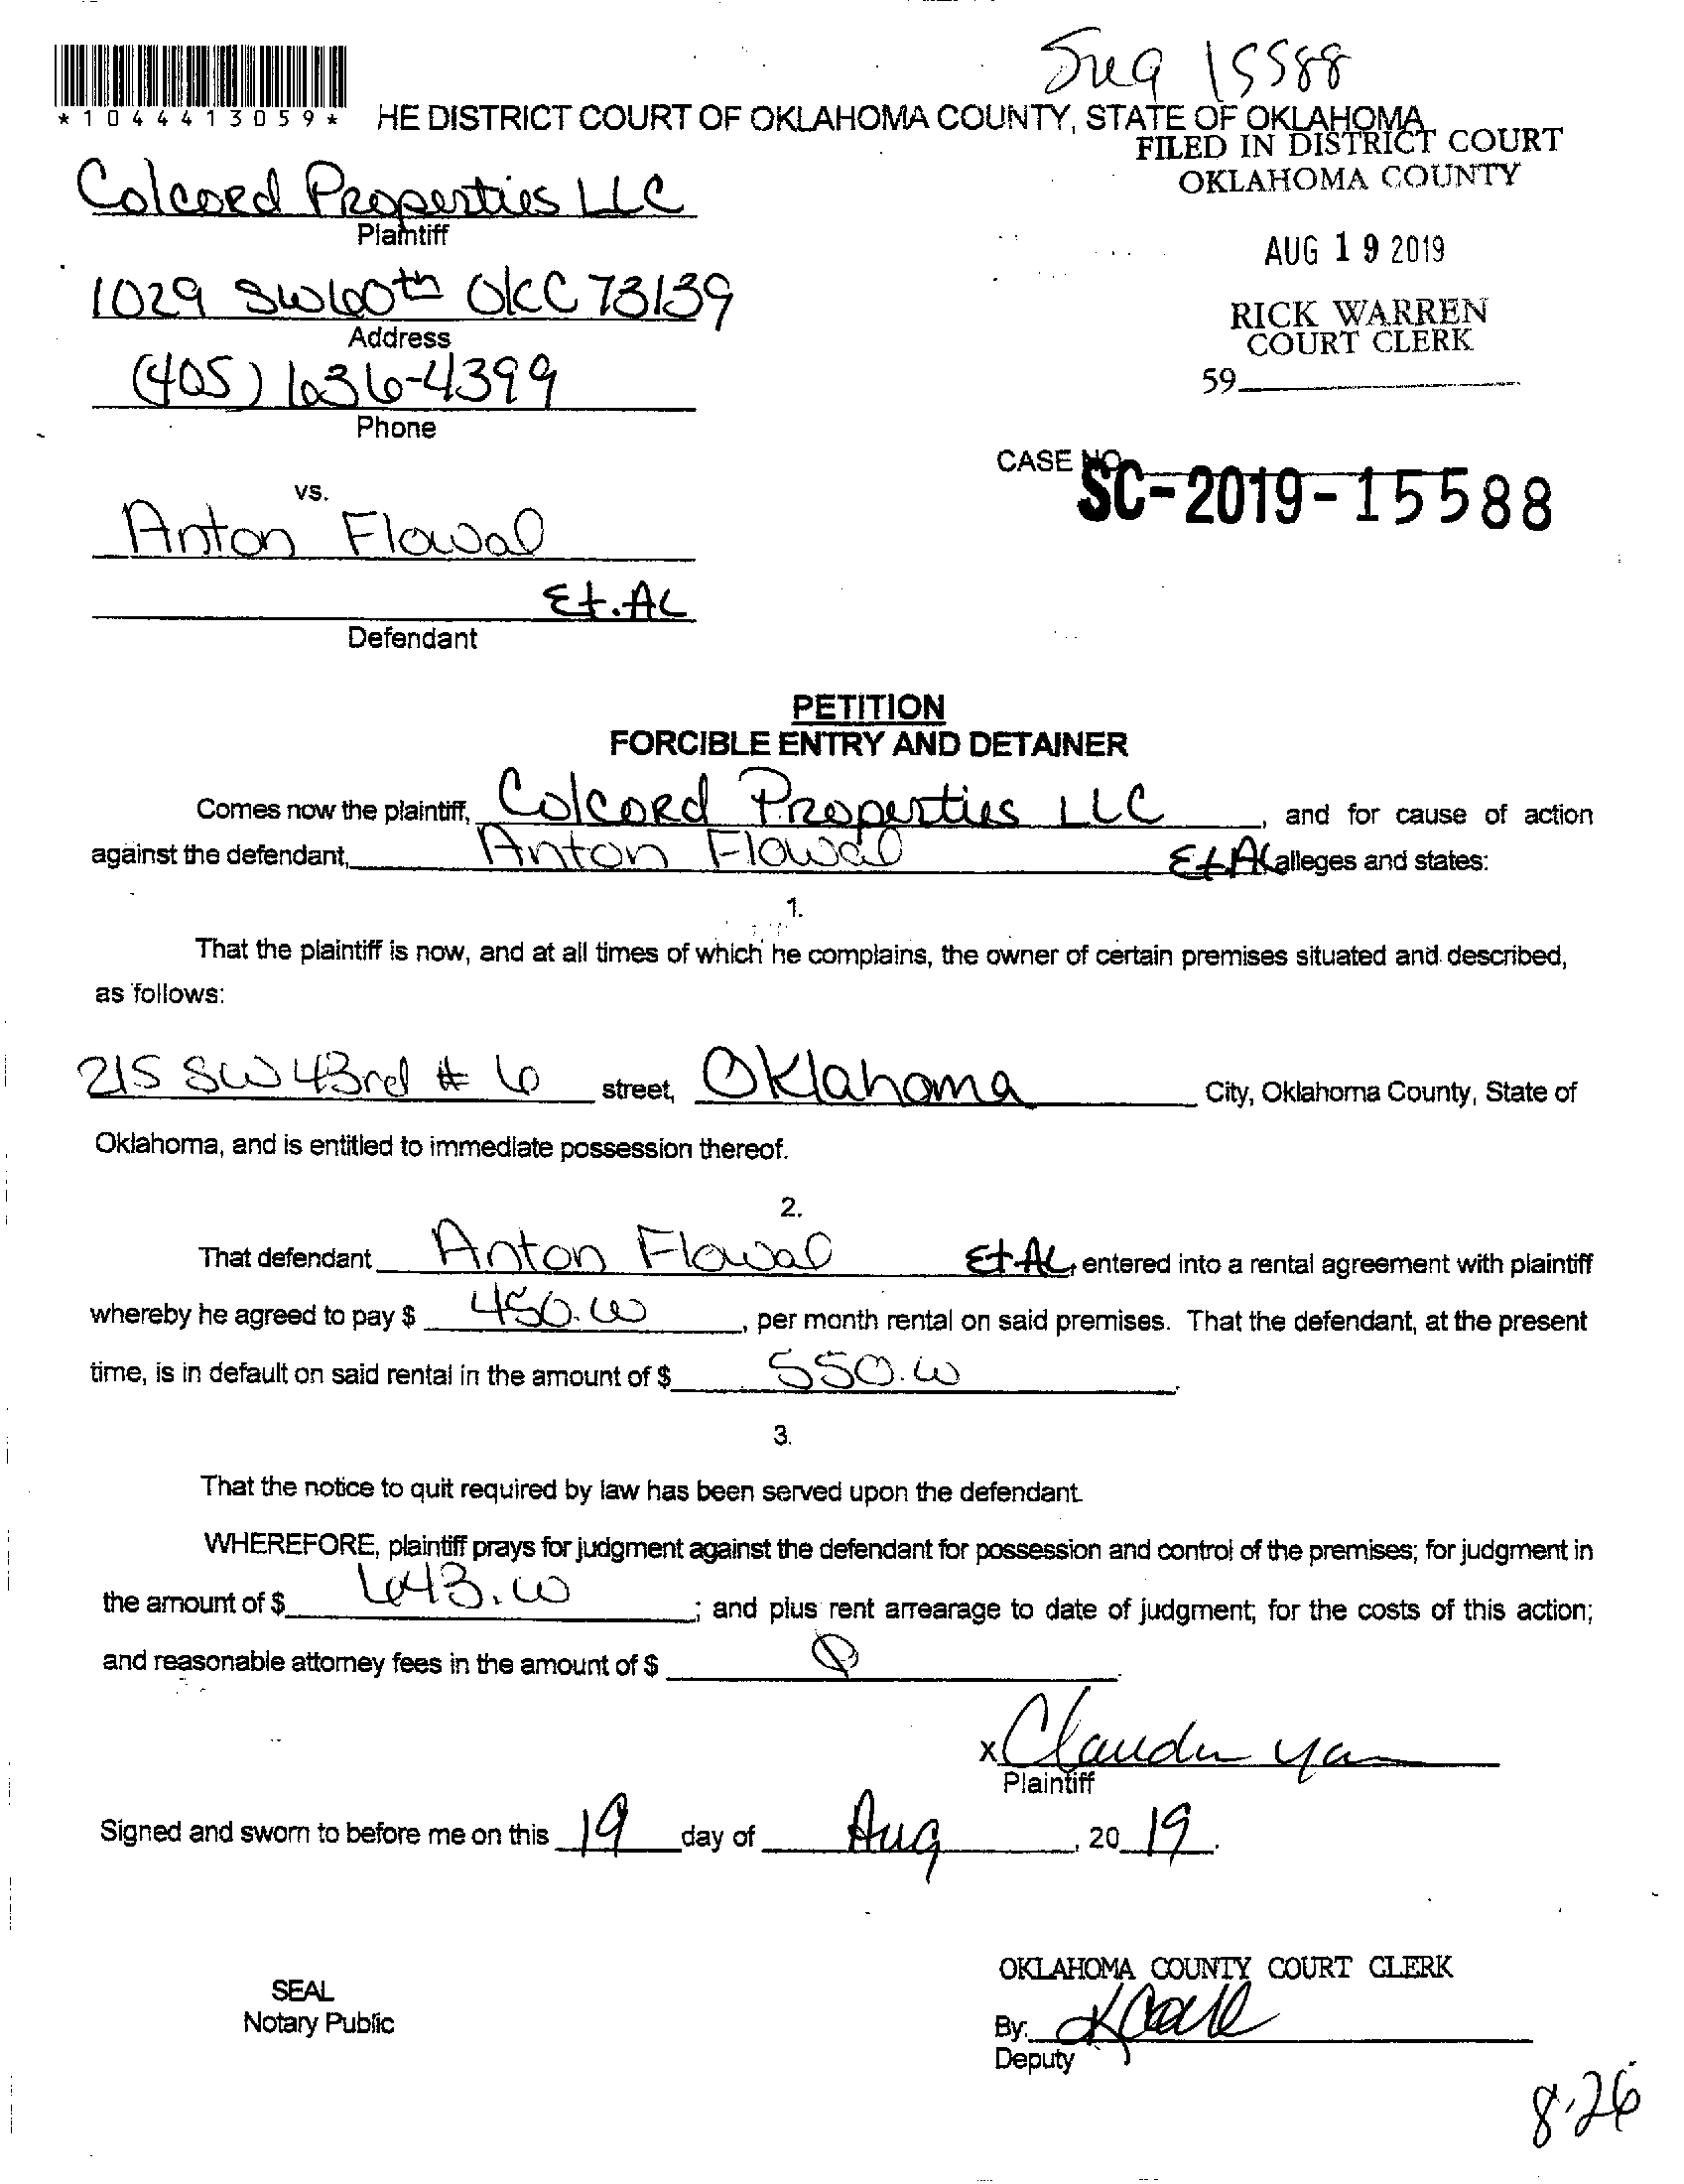 15588
*1044413059* HE DISTRICT COURT OF OKLAHOMA COUNTY, STATE OF OKLAHOMA
FILED IN DISTRICT COURT
OKLAHOMA COUNTY
Colcord Properties LLC
Plaintiff
AUG 19 2019
1029 SW 60th OKC 73139
Address
RICK WARREN
COURT CLERK
(405) 636-4399
Phone
59
CASE NO. SC-2019-15588
vs.
Anton Flowal
Et. AL
Defendant
PETITION
FORCIBLE ENTRY AND DETAINER
Comes now the plaintiff, Colcord Properties LLC, and for cause of action
against the defendant, Anton Flowal Et AL alleges and states:
1.
That the plaintiff is now, and at all times of which he complains, the owner of certain premises situated and described,
as follows:
215 SW 43rd # 6 street, Oklahoma City, Oklahoma County, State of
Oklahoma, and is entitled to immediate possession thereof.
2.
That defendant Anton Flowal Et AL, entered into a rental agreement with plaintiff
whereby he agreed to pay $ 450.00, per month rental on said premises. That the defendant, at the present
time, is in default on said rental in the amount of $ 550.00
3.
That the notice to quit required by law has been served upon the defendant.
WHEREFORE, plaintiff prays for judgment against the defendant for possession and control of the premises; for judgment in
the amount of $ 643.00; and plus rent arrearage to date of judgment; for the costs of this action;
and reasonable attorney fees in the amount of $ 0.
x
Plaintiff
Signed and sworn to before me on this 19 day of Aug, 20 19.
OKLAHOMA COUNTY COURT CLERK
SEAL
Notary Public
By:
Deputy
8.26